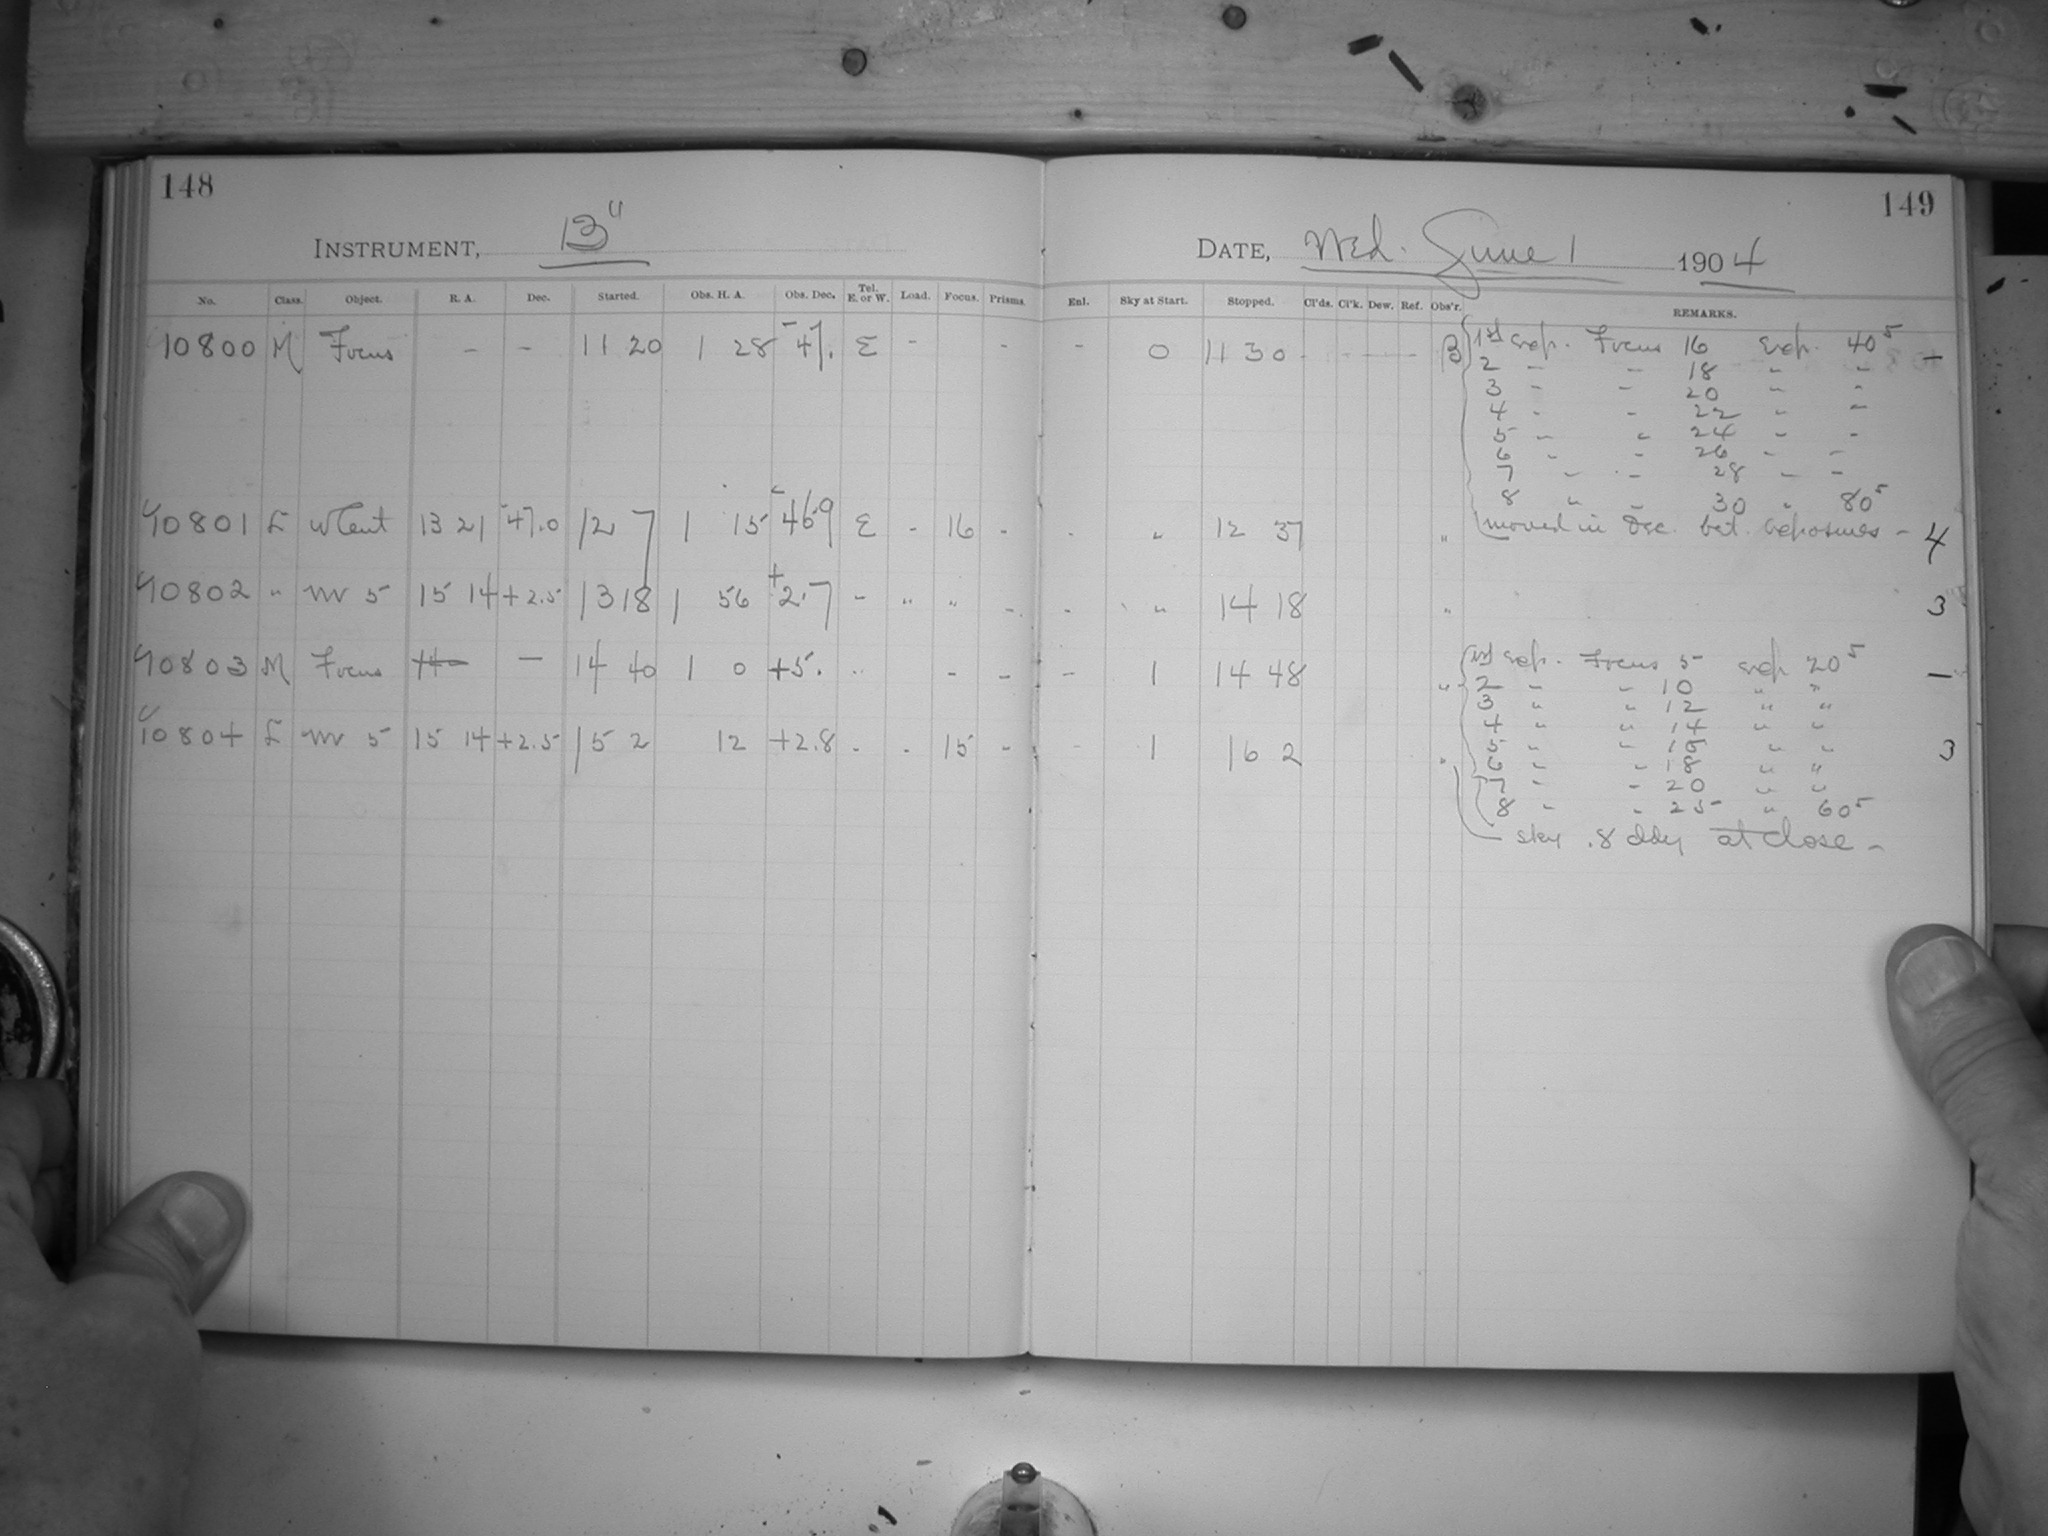 148
149
INSTRUMENT, 13"
DATE, Wed. June 1 1904
No. Class. Object. R. A. Dec. Started. Obs. H. A. Obs. Dec. Tel. E. or W. Load. Focus. Prisms. Enl. Sky at Start. Stopped. Cl'ds. Cl'k. Dew. Ref. Obs'r. REMARKS.
10800 M Focus - - 11 20 1 28 -47. E - - - 0 11 30 - - - - B 1st exp. Focus 16 exp. 40s -
2 - - 18 " "
3 - - 20 " "
4 - - 22 " -
5 - " 24 - -
6 " - 26 - -
7 - - 28 - -
8 " - 30 " 80s
10801 L w Cent 13 21 -47.0 12 7 1 15 -46.9 E - 16 - - " 12 37 " moved in Dec. bet. exposures - 4
10802 " nv 5 15 14 +2.5 13 18 1 56 +2.7 - " " - - " 14 18 " 3
10803 M Focus 14 - 14 40 1 0 +5. " - - - 1 14 48 " 1st exp. Focus 5 exp 20s -
2 - - 10 " "
3 " " 12 " "
4 " " 14 " "
10804 L nv 5 15 14 +2.5 15 2 12 +2.8 - - 15 - - 1 16 2 " 3
5 " " 16 " "
6 " " 18 " "
7 - - 20 " "
8 - - 25 " 60s
sky .8 ddy at close -